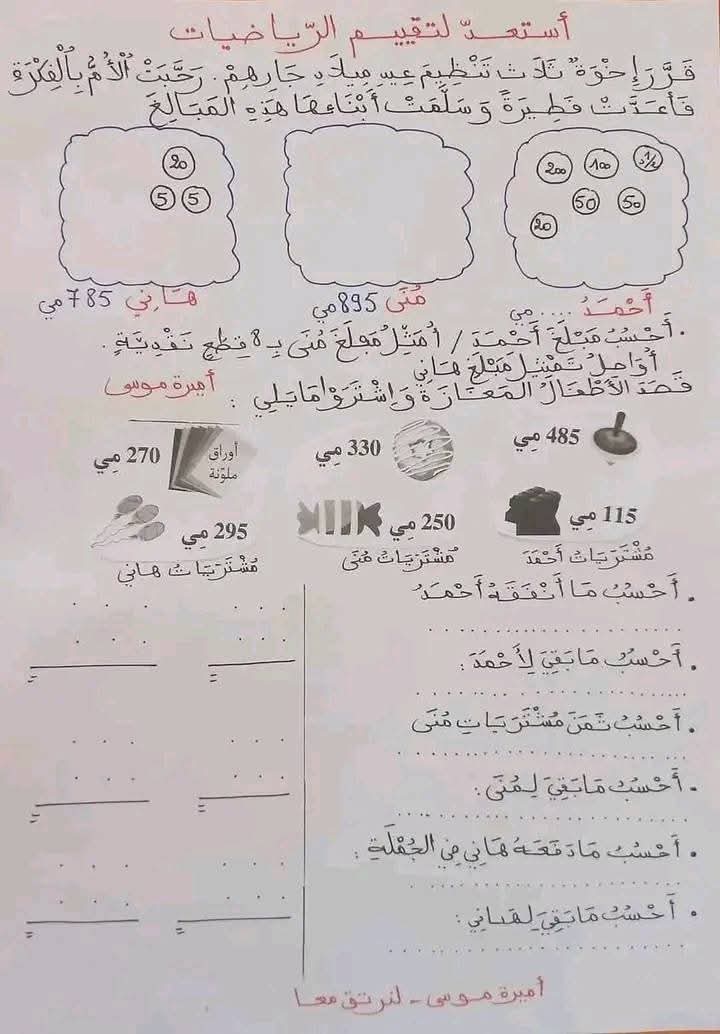 أستعدّ لتقييم الرّياضيات
قَرَّرَ إِخْوَةٌ ثَلَاث تَنْظِيمَ عِيدِ مِيلَادِ جَارِهِمْ. رَحَّبَتْ الْأُمُّ بِالْفِكْرَةِ
فَأَعَدَّتْ فَطِيرَةً وَسَلَّمَتْ أَبْنَاءَهَا هَذِهِ المَبَالِغَ
200 100 1/2
50 50
20
20
5 5
أَحْمَدُ .... مي
مُنَى 895 مي
هَانِي 785 مي
. أَحْسُبُ مَبْلَغَ أَحْمَدَ / أُمَثِّلُ مَبْلَغَ مُنَى بِـ 8 قِطَعٍ نَقْدِيَّةٍ.
أُوَاصِلُ تَمْثِيلَ مَبْلَغِ هَانِي
قَصَدَ الأَطْفَالُ المَغَازَةَ وَاِشْتَرَوْا مَايَلِي :
أميرة موسى
485 مِي
330 مِي
أوراق ملوّنة
270 مِي
115 مِي
250 مِي
295 مِي
مُشْتَرَيَاتُ أَحْمَدَ
مُشْتَرَيَاتُ مُنَى
مُشْتَرَيَاتُ هاني
. أَحْسُبُ مَا أَنْفَقَهُ أَحْمَدُ
. أَحْسُبُ مَا بَقِيَ لِأَحْمَدَ :
. أَحْسُبُ ثَمَنَ مُشْتَرَيَاتِ مُنَى
. أَحْسُبُ مَا بَقِيَ لِـمُنَى :
. أَحْسُبُ مَا دَفَعَهُ هَانِي فِي الجُمْلَةِ :
. أَحْسُبُ مَا بَقِيَ لِهَانِي :
أميرة موسى - لنرتق معا